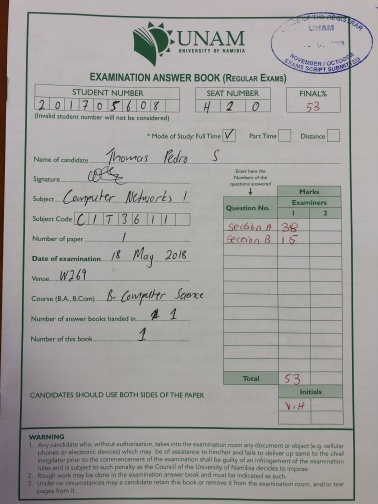 UNAM
UNIVERSITY OF NAMIBIA
REGISTRAR
UNAM
NOVEMBER / OCTOBER
EXAMS SCRIPT SUBMITTED
EXAMINATION ANSWER BOOK (REGULAR EXAMS)
STUDENT NUMBER SEAT NUMBER FINAL%
201705608 H20 53
(Invalid student number will not be considered)
* Mode of Study: Full Time ✓ Part Time Distance
Name of candidate Thomas Pedro S
Signature
Enter here the Numbers of the questions answered
Subject Computer Networks 1
Subject Code CIT3611
Number of paper 1
Date of examination 18 May 2018
Venue W269
Course (B.A., B.Com) B. Computer Science
Number of answer books handed in 1
Number of this book 1
Marks
Question No. Examiners
1 2
Section A 38
Section B 15
Total 53
CANDIDATES SHOULD USE BOTH SIDES OF THE PAPER
Initials
V.H
WARNING
1. Any candidate who, without authorisation, takes into the examination room any document or object (e.g. cellular
phones or electronic devices) which may be of assistance to him/her and fails to deliver up same to the chief
invigilator prior to the commencement of the examination shall be guilty of an infringement of the examination
rules and is subject to such penalty as the Council of the University of Namibia decides to impose.
2. Rough work may be done in the examination answer book and must be indicated as such.
3. Under no circumstances may a candidate retain this book or remove it from the examination room, and/or tear
pages from it.